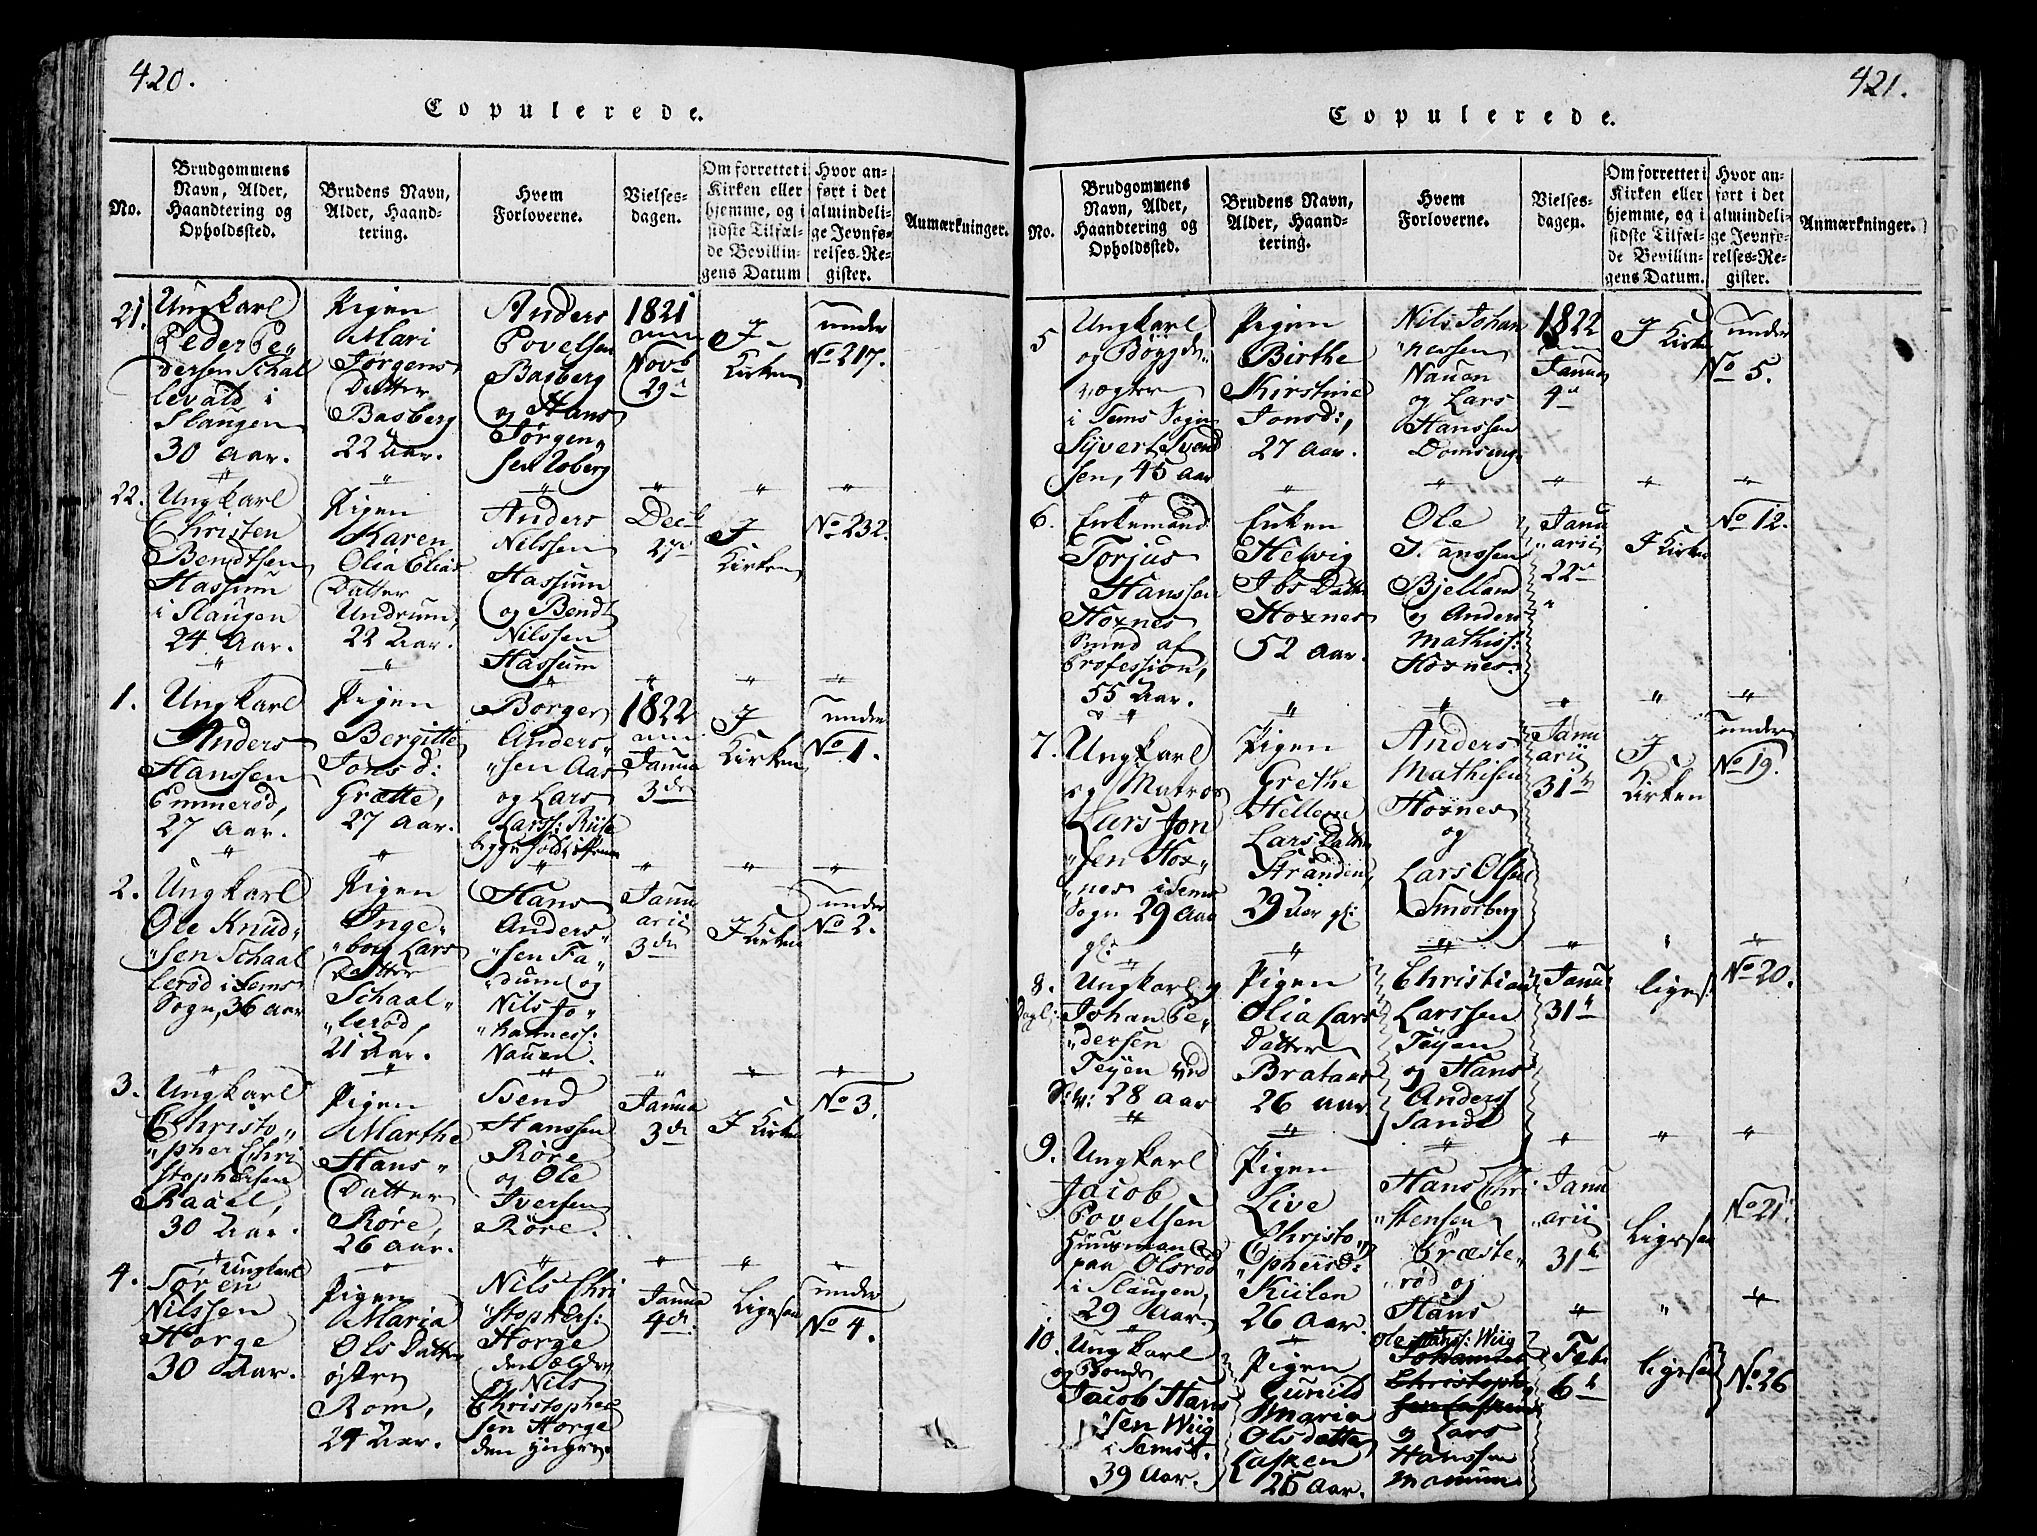 420.
Copulerede.
No.
Brudgommens
Navn, Alder,
Haandtering og
Opholdssted.
Brudens Navn,
Alder, Haand-
tering.
Hvem
Forloverne.
Vielses-
dagen.
Om forrettet i
Kirken eller
hjemme, og i
sidste Tilfæl-
de Bevillin-
gens Datum
Hvor an-
ført i det
almindeli-
ge Jevnfø-
relses-Re-
gister.
Anmærkninger.
21.
Ungkarl
Peder Pe„
dersen Schal
levald i
Slaugen
30 Aar.
Pigen
Mari
Jørgens
Datter
Basberg
22 Aar.
Anders
Povelsen
Basberg
og Hans
Jørgen„
sen
1821
Novb
29d
I
Kirken
under
No 217.
22.
Ungkarl
Christen
Bendtsen
Hassum
i Slaugen
24 Aar.
Pigen
Karen
Olia Elias
Datter
Undrum,
22 Aar.
Anders
Nilssen
Hassum
og Bendt
Nilssen
Hassum
Decb
27d
I
Kirken
No 232.
1.
Ungkarl
Anders
Hanssen
Emmerød,
27 Aar.
Pigen
Bergitte
Jonsd:
Grætte,
27 Aar.
Borger
Anders„
„sen Aas
og Lars
Larss: Riise
1822
Janua
3die
I
Kirken
under
No 1.
2.
Ungkarl
Ole Knud„
„sen Schaal
lerød i Sems
Sogn, 36 aar
Pigen
Inge„
„borg Lars
Datter
Schaal„
„lerød,
21 Aar.
Hans
Anders„
„sen Fa„
„dum og
Nils Jo„
„hanness:
Nauen.
Janu
arii
3die
I Kirken
under
No 2.
3.
Ungkarl
Christo„
„pher Chri
stophersen
Raael,
30 Aar.
Pigen
Marthe
Hans„
Datter
Røre,
26 aar.
Svend
Hanssen
Røre
og Ole
Iversen
Røre.
Janua
3die
I Kirken
No 3.
4.
Ungkarl
Søren
Nilssen
Horge
30 Aar.
Pigen
Maria
Ols Datter
østre
Rom,
24 Aar.
Nils Chri
„stophers:
Horge
den ældre
og Nils
Christopher
sen Horge
den yngre.
Janua
4de
Ligesaa
under
No 4.
421.
Copulerede.
No.
Brudgommens
Navn, Alder,
Haandtering og
Opholdssted.
Brudens Navn,
Alder, Haand-
tering.
Hvem
Forloverne.
Vielses-
dagen.
Om forrettet i
Kirken eller
hjemme, og i
sidste Tilfæl-
de Bevillin-
gens Datum.
Hvor an-
ført i det
almindeli-
ge Jevnfø-
relses-Re-
gister.
Anmærkninger.
5
Ungkarl
og Bøygde„
vægter
i Sems Sogn
Syvert Svend
sen, 45 Aar
Pigen
Birthe
Kirstine
Jonsd:,
27 Aar.
Nils Johan
„nessen
Nauen
og Lars
Hanssen
1822
Janua
4d
I Kirken
under
No 5.
6.
Enkemand
Torjus
Hanssen
Hoxnes
Smed af
Profession,
55 Aar.
Enken
Helvig
Ibs Datter
Hoxnes
52 Aar.
Ole
Hanssen
Bjelland
og Anders
Mathiss:
Hoxnes.
Janu
„arii
22d
I Kirken
No 12.
7.
Ungkarl
og Matros
Lars Jon
„sen Hox„
„nes i Sems
Sogn 29 Aar
gl:
Pigen
Grethe
Hellem
Lars Datter
Stranden,
29 Aar gl:
Anders
Mathisen
Hoxnes
og
Lars Olsen
Smørberg
Janu
arii
31te
I
Kirken
under
No 19.
8.
Ungkarl
Johan Pe„
„dersen
Teyen ved
28 aar
Pigen
Olia Lars
Datter
Brataas
26 aar
Christian
Larssen
Teyen
og Hans
Anders
Sande
Janu
31te
ligesaa
No 20.
9.
Ungkarl
Jacob
Povelsen
Huusmand
paa Olsrød
i Slaugen,
29 Aar.
Pigen
Live
Christo„
„phersd:
Kiilen
26 Aar.
Hans Chri
„stensen
Græste„
„rød og
Hans
Janu
„arii
31te
Ligesaa
No 21.
10.
Ungkarl
og Bonde
Jacob Hans
„sen Wiig
i Sems S.
39 Aar.
Pigen
Gunild
Maria
Olsdatter
Lasken
25 Aar.
Ole Hans: Wiig
Johannes
Christopher
sen Lasken
og Lars
Hanssen
Manum
Feb:
6te
ligesaa
No 26